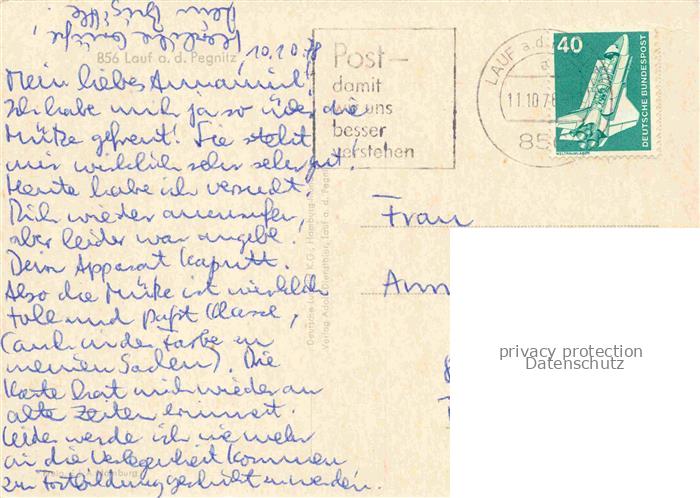 856 Lauf a. d. Pegnitz
10.10.78
Mein liebes Annamirl!
Ich habe mich ja so über die
Mütze gefreut! Sie steht
mir wirklich sehr sehr gut!
Heute habe ich versucht
Dich wieder anzurufen,
aber leider war angebl.
Dein Apparat kaputt.
Also die Mütze ist wirklich
toll und paßt klasse,
(auch in der Farbe zu
meinen Sachen). Die
Karte hat mich wieder an
alte Zeiten erinnert.
Leider werde ich nie mehr
in die Verlegenheit kommen
zur Fortbildung geschickt zu werden.
herzliche Grüße,
Dein
Post-
damit
wir uns
besser
verstehen
LAUF a.d.
11.10.78
856
40
DEUTSCHE BUNDESPOST
WELTRAUMLABOR
Frau
Ann
privacy protection
Datenschutz